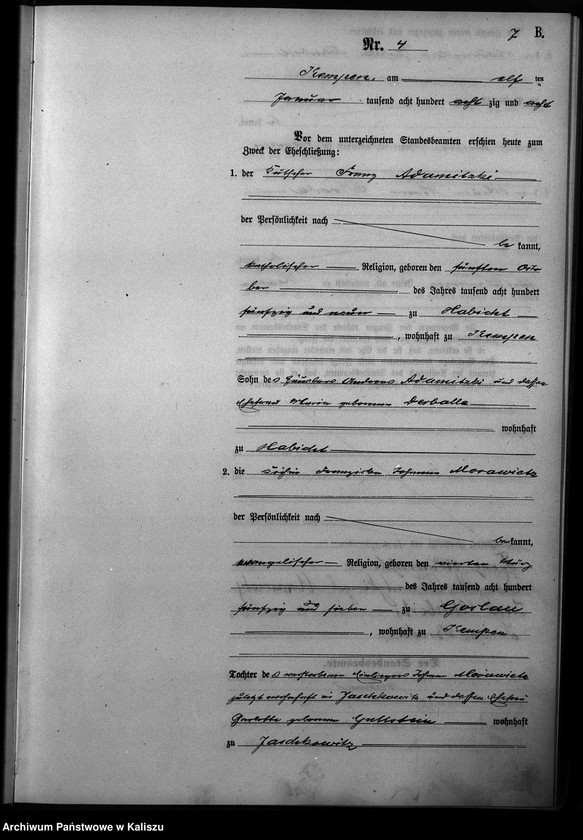 7 B.
Nr. 4
Kempen, am elf ten
Januar tausend acht hundert acht zig und acht
Vor dem unterzeichneten Standesbeamten erschien heute zum
Zweck der Eheschließung:
1. der Kutscher Franz Adamitzki
der Persönlichkeit nach
be kannt,
katholischer Religion, geboren den fünften Octo
ber des Jahres tausend acht hundert
fünfzig und neun zu Habicht
, wohnhaft zu Kempen
Sohn des Häuslers Andreas Adamitzki und dessen
Ehefrau Maria geborenen Derballa
wohnhaft
zu Habicht
2. die Köchin Franziska Johanna Morawietz
der Persönlichkeit nach
be kannt,
evangelischer Religion, geboren den vierten März
des Jahres tausend acht hundert
fünfzig und sieben zu Gorlau
, wohnhaft zu Kempen
Tochter des verstorbenen Einliegers Johann Morawietz
zuletzt wohnhaft in Jaschkowitz und dessen Ehefrau
geborenen wohnhaft
zu Jaschkowitz
Archiwum Państwowe w Kaliszu